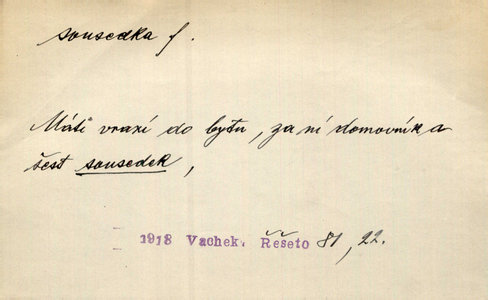 sousedka f.
Máti vrazí do bytu, za ní domovník a
šest sousedek,
1918 Vachek. Řešeto 81, 22.